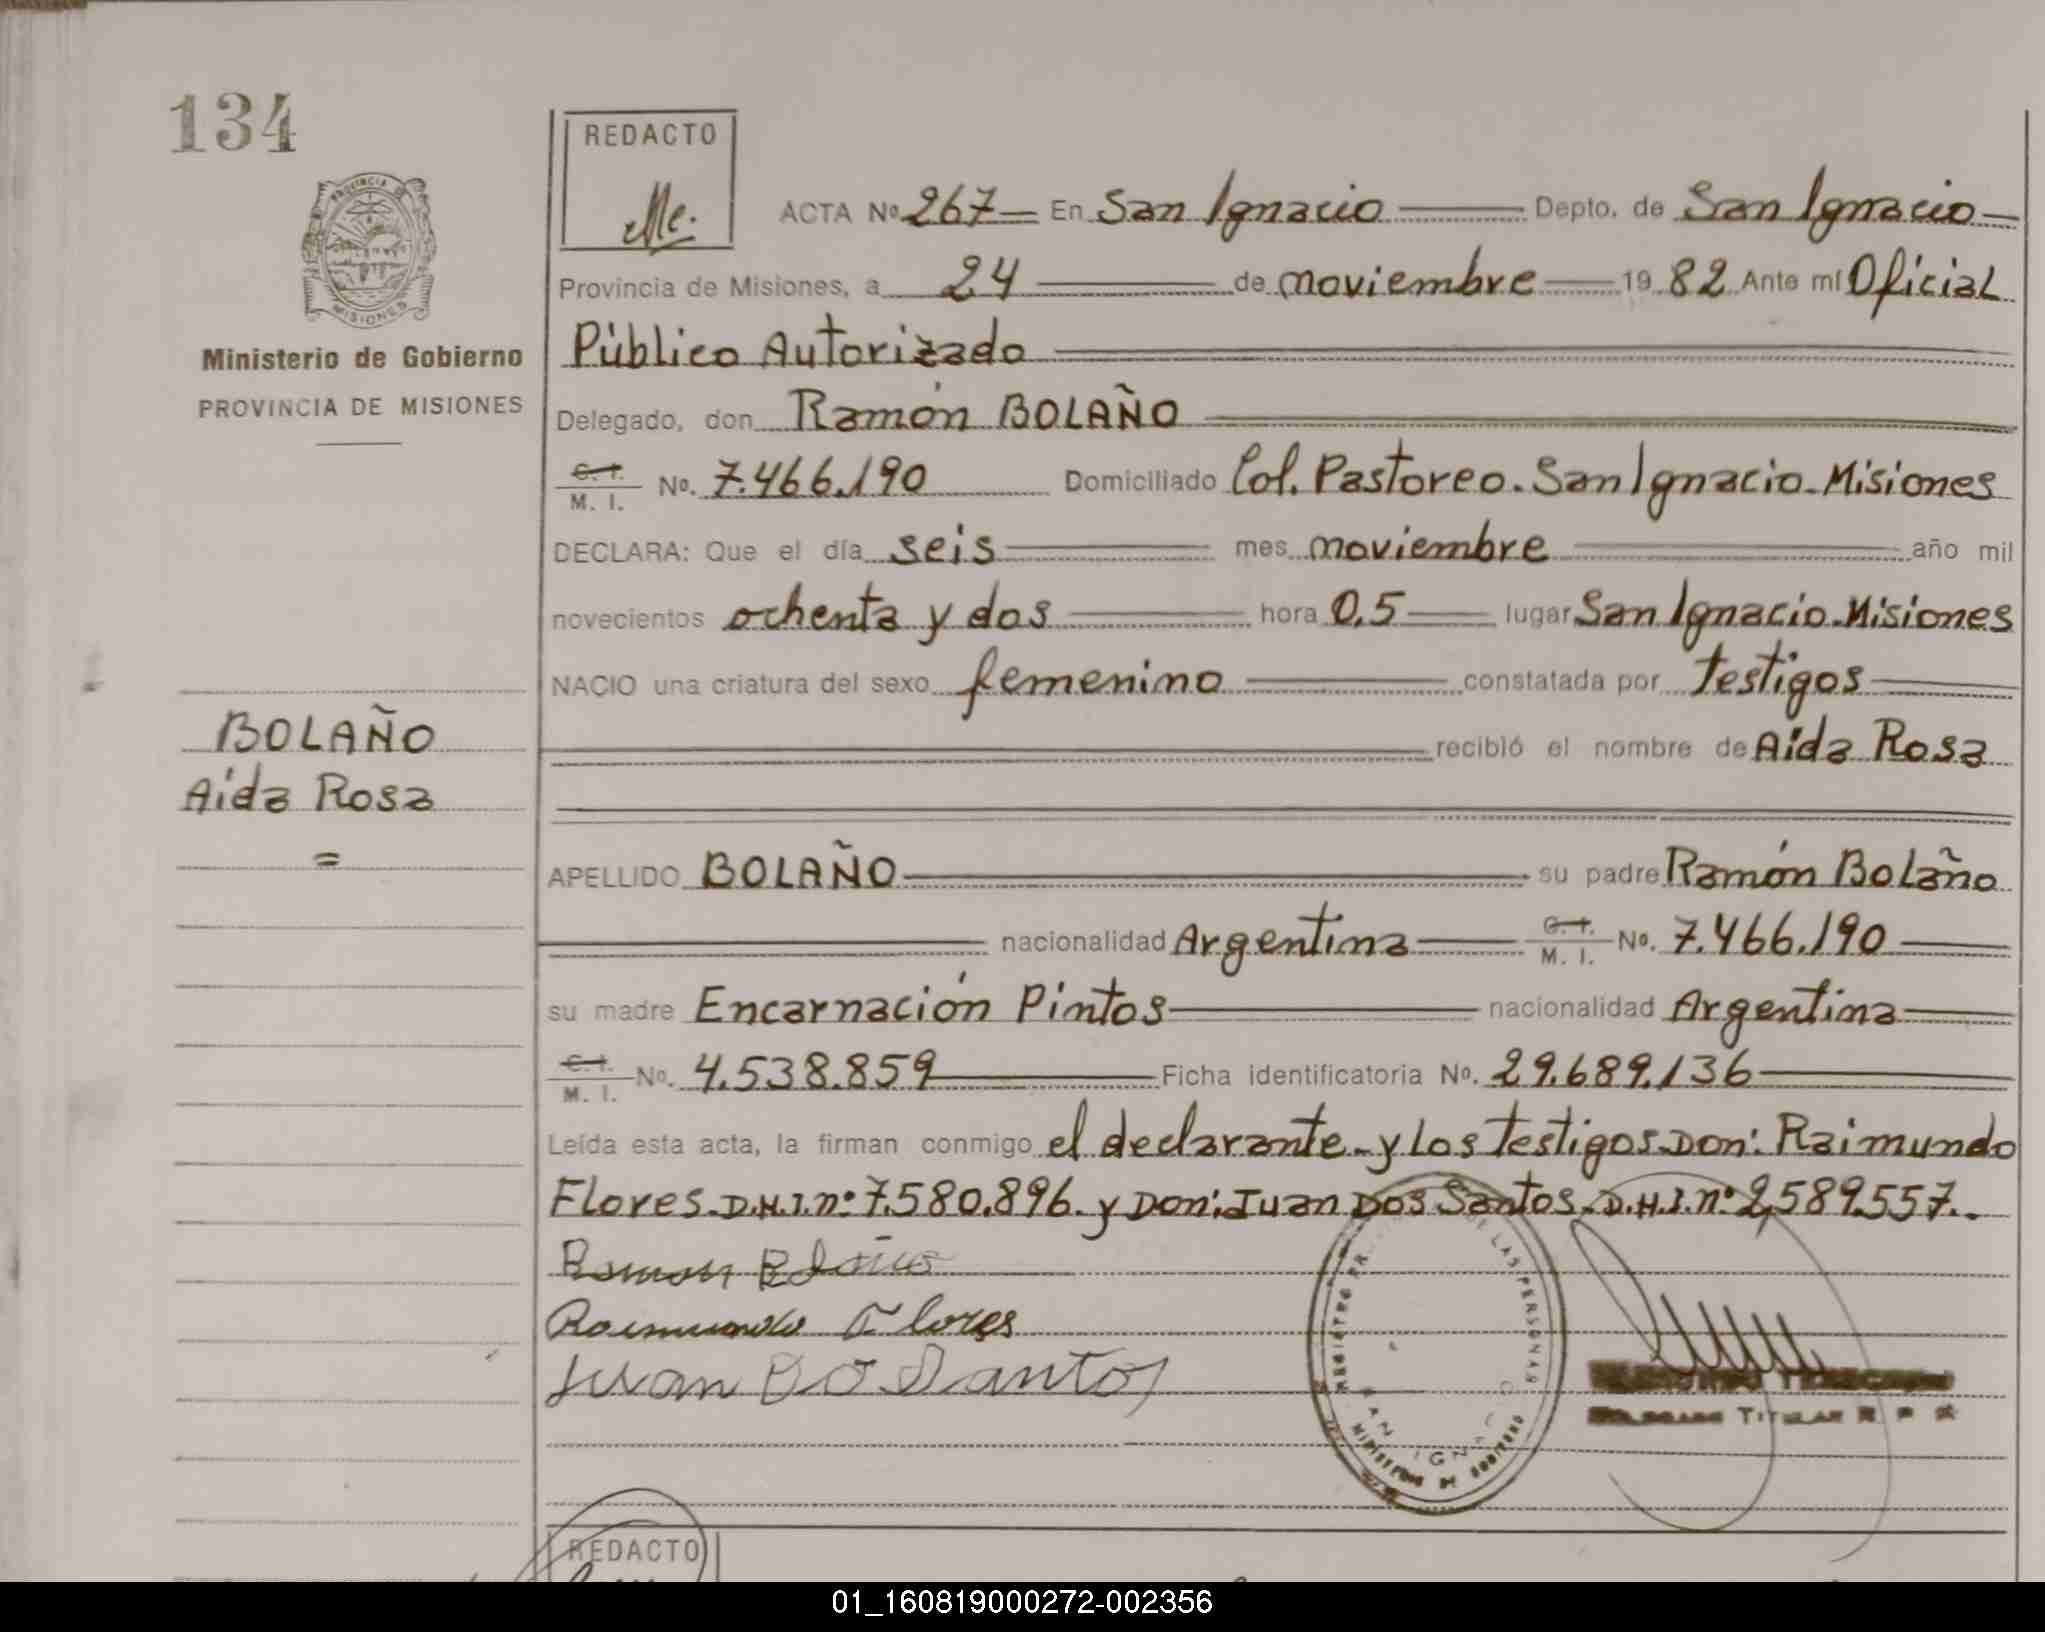 134
PROVINCIA DE
MISIONES
Ministerio de Gobierno
PROVINCIA DE MISIONES
BOLAÑO
Aída Rosa
=
REDACTO
Me.
ACTA Nº 267 — En San Ignacio — Depto. de San Ignacio —
Provincia de Misiones, a 24 — de noviembre — 19 82 Ante mí Oficial
Público Autorizado
Delegado, don Ramón BOLAÑO
C. I.
M. I. Nº. 7.466.190 Domiciliado Col. Pastoreo. San Ignacio. Misiones
DECLARA: Que el día seis — mes noviembre — año mil
novecientos ochenta y dos — hora 0,5 — lugar San Ignacio. Misiones
NACIO una criatura del sexo femenino — constatada por testigos —
recibió el nombre de Aída Rosa
APELLIDO BOLAÑO — su padre Ramón Bolaño
nacionalidad Argentina — C. I. M. I. Nº. 7.466.190 —
su madre Encarnación Pintos — nacionalidad Argentina —
C. I.
M. I. Nº. 4.538.859 — Ficha identificatoria Nº. 29.689.136 —
Leída esta acta, la firman conmigo el declarante. y Los testigos Don: Raimundo
Flores. D.N.I. nº 7.580.896. y Don: Juan Dos Santos. D.N.I. nº 2,589.557..
Ramon Bolaño
Raimundo Flores
Juan Do Santos
REGISTRO PR DE LAS PERSONAS
SAN IGNACIO
MINISTERIO DE GOBIERNO
TITULAR R P
REDACTO
01_160819000272-002356